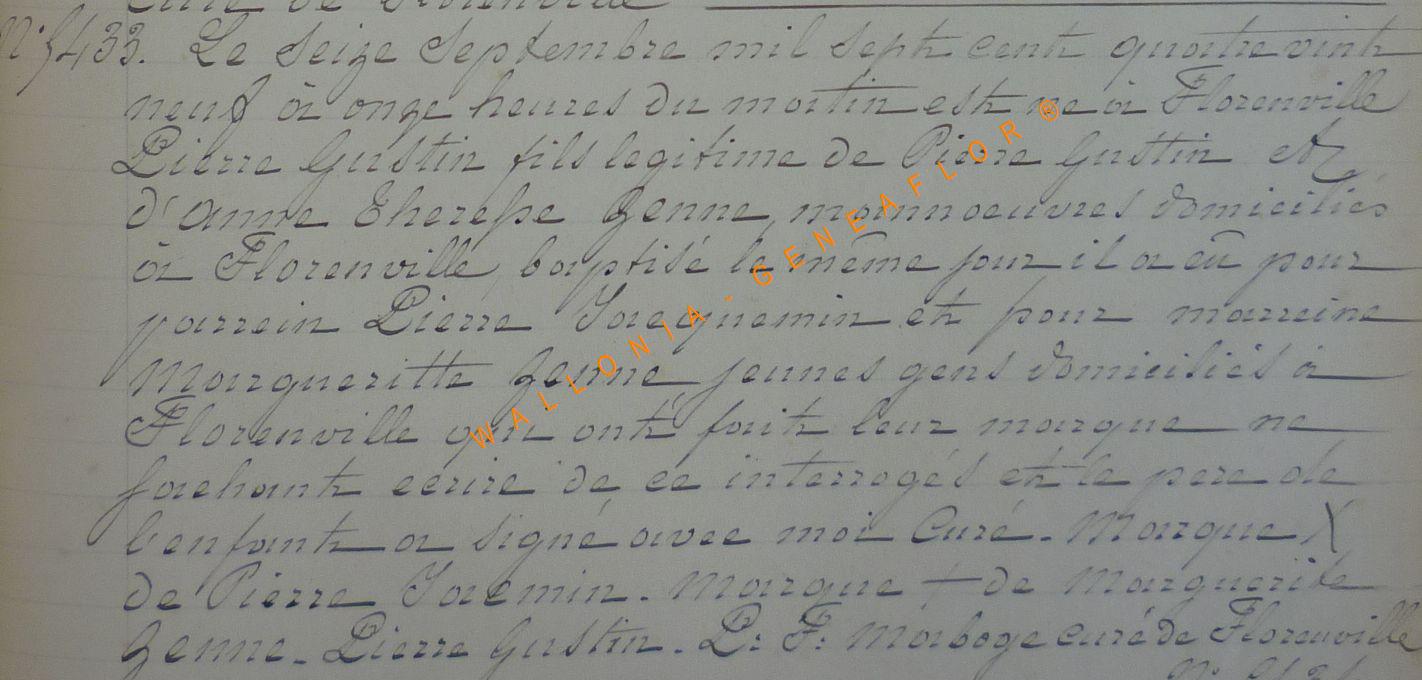 Curé de Florenville
N° 1433. Le Seize Septembre mil Sept cent quatre vint
neuf à onze heures du matin est né à Florenville
Pierre Gustin fils legitime de Pierre Gustin et
d'anne Theresse Genne, mannoeuvres domiciliés
à Florenville, baptisé le même jour il a eû pour
parrein Pierre Jacquemin et pour marreine
Margueritte Genne jeunes gens domiciliés à
Florenville qui ont fait leur marque ne
sachant ecrire de ce interrogés et le pere de
l'enfant a signé avec moi Curé. Marque X
de Pierre Jacmin. Marque + de Marguerite
Genne. Pierre Gustin. P: F: Maboge curé de Florenville
WALLONIA-GENEAFLOR®